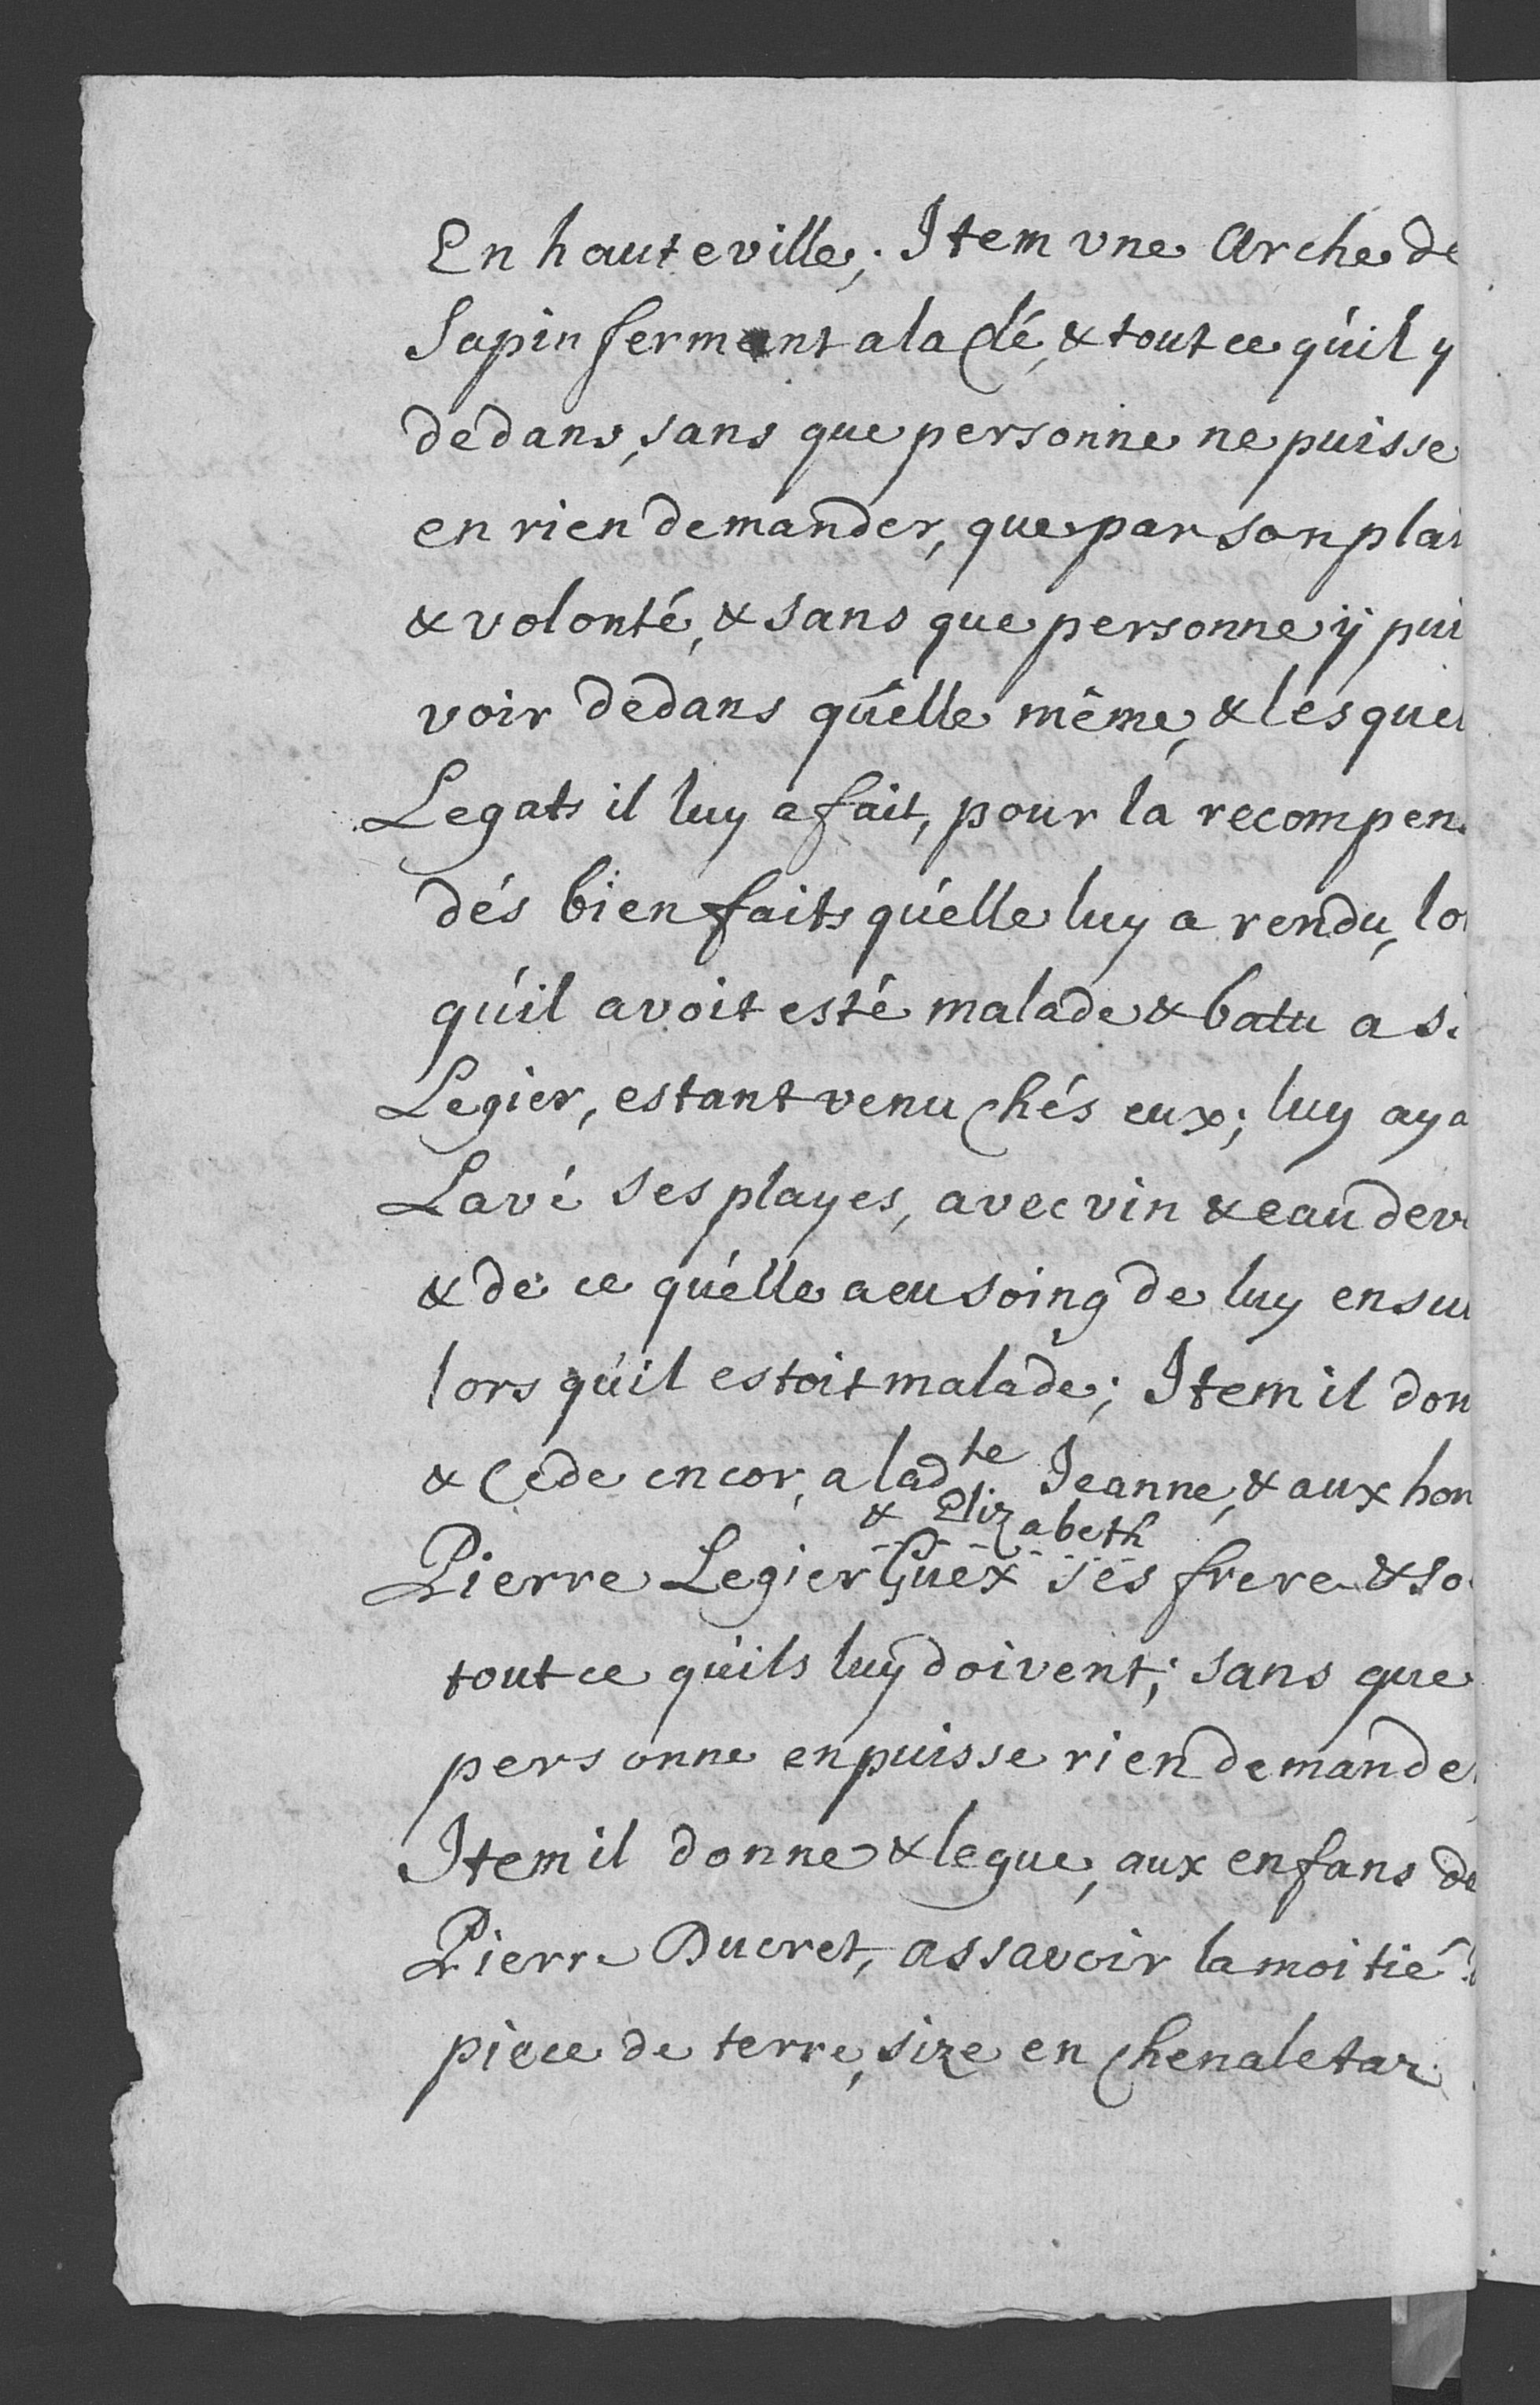 En hauteville; Item vne Arche de
Sapin fermant a la Clé, & tout ce qu'il y
dedans, sans que personne ne puisse
en rien demander, que par son plai
& volonté, & sans que personne ÿ pui
voir dedans qu'elle même, & lesquel
Legats il luy a fait, pour la recompen
dés bienfaits qu'elle luy a rendu, lo
qu'il avoit esté malade & batu a s.
Legier, estant venu Chés eux; luy aya
Lavé ses playes, avec vin & eau dev
& de ce qu'elle a eu soing de luy ensui
lors qu'il estoit malade; Item il don
& Cede encor, a lad.te Jeanne, & aux hon
& Elizabeth
Pierre Legier Guex ses frere & so
tout ce qu'ils luy doivent; sans que
personne en puisse rien demander
Item il donne & legue, aux enfans de
Pierre Ducret, assavoir la moitié
piece de terre, size en Chenaletaz